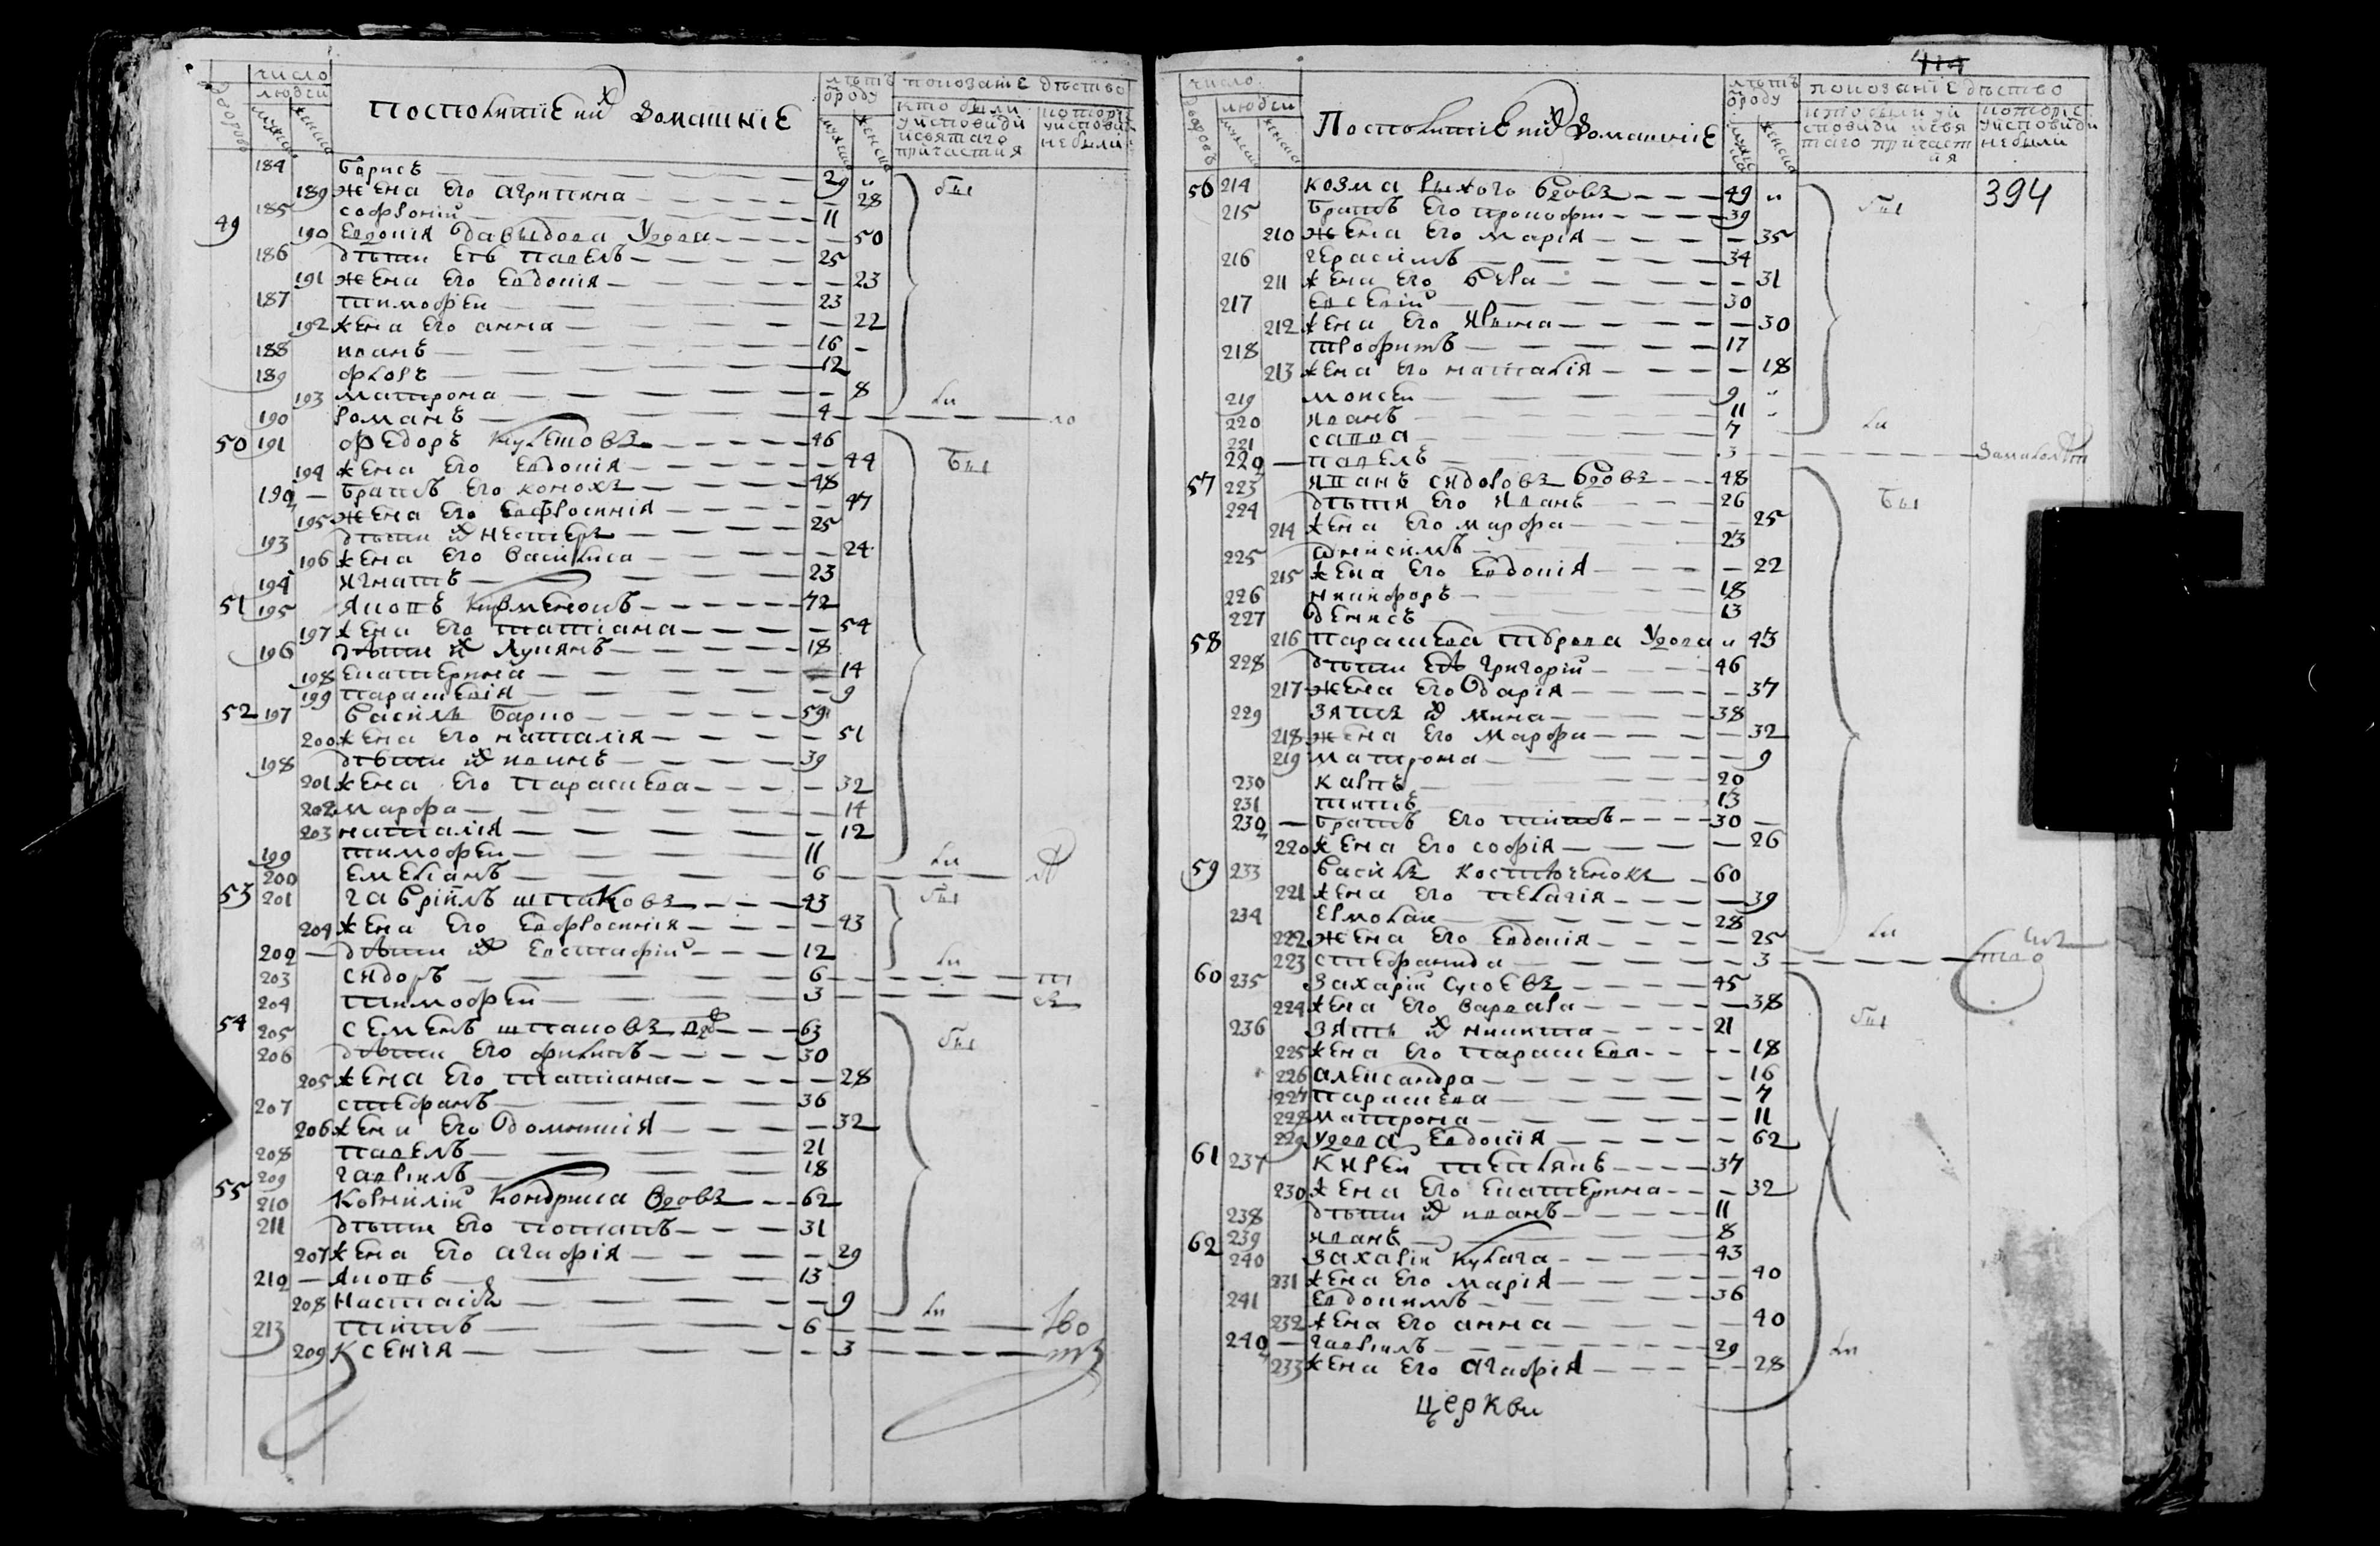 число
людей
дворовъ
мужска
женска
посполитіе ихъ домашніе
лѣтъ
ѿ роду
мужска
женска
показаніе дѣйство
кто были
у исповѣди
и святаго
причастия
которіе
у исповѣди
не были
184 Борисъ 29
189 жена его агрипина 28
185 софроній 11
49 190 Евдокія Давидова удова 50
186 дѣти ей павелъ 25
191 жена его Евдокія 23
187 тимофей 23
192 жена его анна 22
188 иванъ 16
189 флоръ 12
193 матрона 8
190 романъ 4
50 191 федоръ 46
194 жена его Евдокія 44
192 братъ его кононъ 48
195 жена его Евфросинія 47
193 дѣти ихъ нестеръ 25
196 жена его василиса 24
194 Игнатъ 23
51 195 Яковъ 72
197 жена его татіана 54
196 дѣти ихъ Лукянъ 18
198 Екатерина 14
199 параскевія 9
52 197 василь Барко 59
200 жена его наталія 51
198 дѣти ихъ иванъ 39
201 жена его параскева 32
202 марфа 14
203 наталія 12
199 тимофей 11
200 Емеліанъ 6
53 201 гавріилъ шпаковъ 43
204 жена его Евфросинія 43
202 дѣти ихъ Евстафій 12
203 сидоръ 6
204 тимофей 3
54 205 семенъ шпаковъ вдовъ 63
206 дѣти его филипъ 30
205 жена его татіана 28
207 стефанъ 36
206 жена его домникія 32
208 павелъ 21
209 гавріилъ 18
55 210 Корнилій Кондрика вдовъ 62
211 дѣти его потапъ 31
207 жена его агафія 29
212 Яковъ 13
208 настасія 9
213 титъ 6
209 Ксенія 3
число
людей
дворовъ
мужска
женска
Посполитіе ихъ домашніе
лѣтъ
ѿ роду
мужска
женска
показаніе дѣйство
кто были у и
сповѣди и свя
таго причаст
ия
которіе
у исповѣди
не были
394
56 214 козма вдовъ 49
215 братъ его прокофій 39
210 жена его марія 35
216 герасимъ 34
211 жена его 31
217 Евсевій 30
212 жена его Ирина 30
218 трофимъ 17
213 жена его наталія 18
219 моисей 9
220 иванъ 11
221 савва 7
222 павелъ 3
57 223 степанъ сидоровъ вдовъ 48
224 дѣти его Иванъ 26
214 жена его марфа 25
225 Онисимъ 23
215 жена его Евдокія 22
226 никифоръ 18
227 денисъ 13
58 216 параскева удова 43
228 дѣти ей григорій 46
217 жена его дарія 37
229 зять ихъ мина 38
218 жена его марфа 32
219 матрона 9
230 карпъ 20
231 титъ 13
232 братъ его титъ 30
220 жена его софія 26
59 233 василь костюченокъ 60
221 жена его пелагія 39
234 Ермолай 28
222 жена его Евдокія 25
223 стефанида 3
60 235 захарій 45
224 жена его варвара 38
236 зять ихъ никита 21
225 жена его параскева 18
226 александра 16
227 параскева 7
228 матрона 11
229 удова Евдокія 62
61 237 Кирей 37
230 жена его Екатерина 32
238 дѣти ихъ иванъ 11
239 иванъ 8
62 240 захарій Кулага 43
231 жена его марія 40
241 Евдокимъ 36
232 жена его анна 40
242 гавріилъ 29
233 жена его агафія 28
церкви